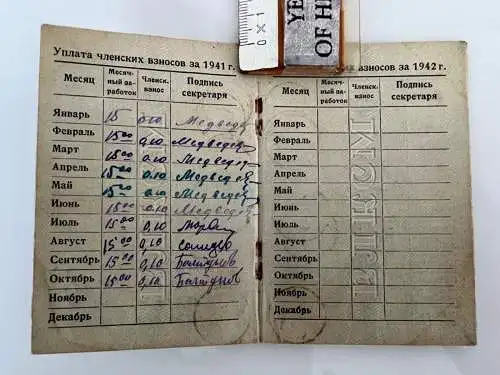 YE
OF H
0 X 1
Уплата членских взносов за 1941 г.
Месяц Месяч-ный за-работок Членск. взнос Подпись секретаря
Январь 15 0,10 Медведев
Февраль 15 00 0,10 Медведев
Март 15 00 0,10 Медведев
Апрель 15 00 0,10 Медведев
Май 15 00 0,10 Медведев
Июнь 15 00 0,10 Медведев
Июль 15 00 0,10
Август 15 00 0,10
Сентябрь 15 00 0,10
Октябрь 15 00 0,10
Ноябрь
Декабрь
их взносов за 1942 г.
Месяц Месяч-ный за-работок Членск. взнос Подпись секретаря
Январь
Февраль
Март
Апрель
Май
Июнь
Июль
Август
Сентябрь
Октябрь
Ноябрь
Декабрь